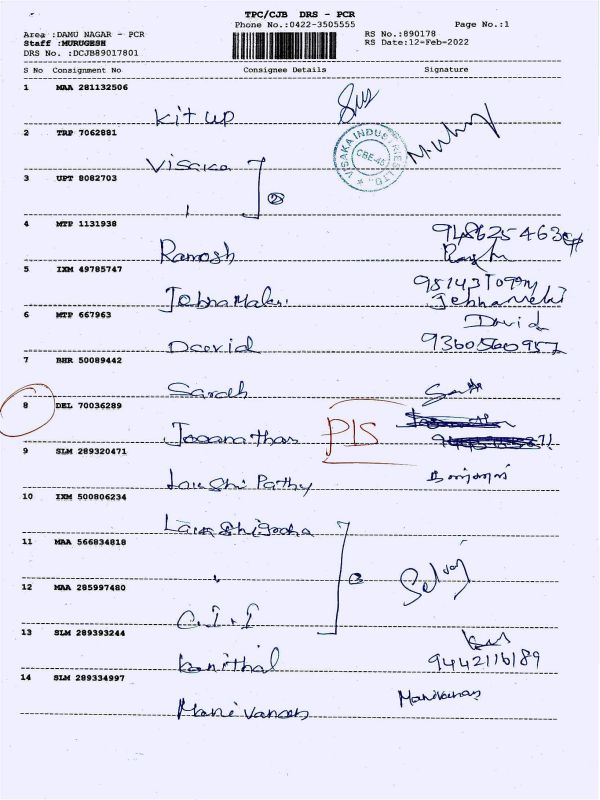 TPC/CJB DRS - PCR
Phone No.:0422-3505555
Page No.:1
Area :DAMU NAGAR - PCR
RS No.:890178
Staff :MURUGESH
RS Date:12-Feb-2022
DRS No. :DCJB89017801
S No Consignment No Consignee Details Signature
1 MAA 281132506
Kit up
2 TRP 7062881
VISAKA INDUSTRIES LTD.
CBE-45
Visaka
3 UPT 8082703
②
4 MTP 1131938
Ramesh
5 IXM 49785747
6 MTP 667963
David
David
9360560957
7 BHR 50089442
Sarath
8 DEL 70036289
9 SLM 289320471
10 IXM 500806234
11 MAA 566834818
Selvaj
12 MAA 285997480
C.I.I
13 SLM 289393244
9442116189
14 SLM 289334997
Manivanan